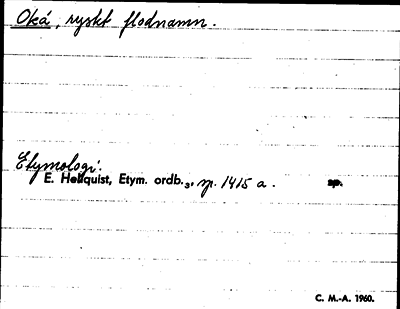 Oká, ryskt flodnamn.
Etymologi:
E. Hellquist, Etym. ordb.₃, sp. 1415 a. sp.
C. M.-A. 1960.